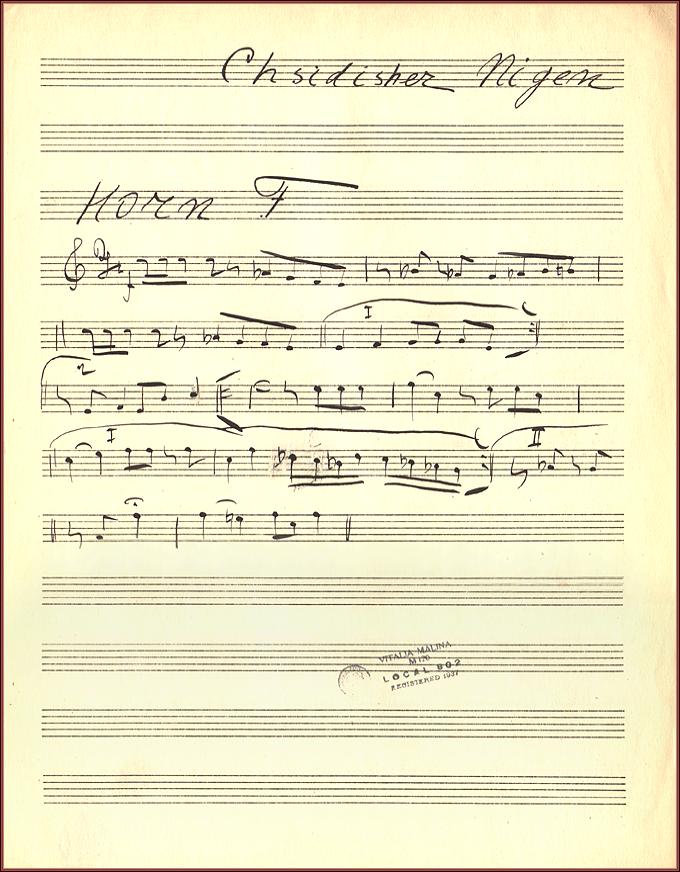 Chsidisher Nigen
Horn F
f
I
2
I
II
VITALIA MALINA
LOCAL 802
REGISTERED 1937